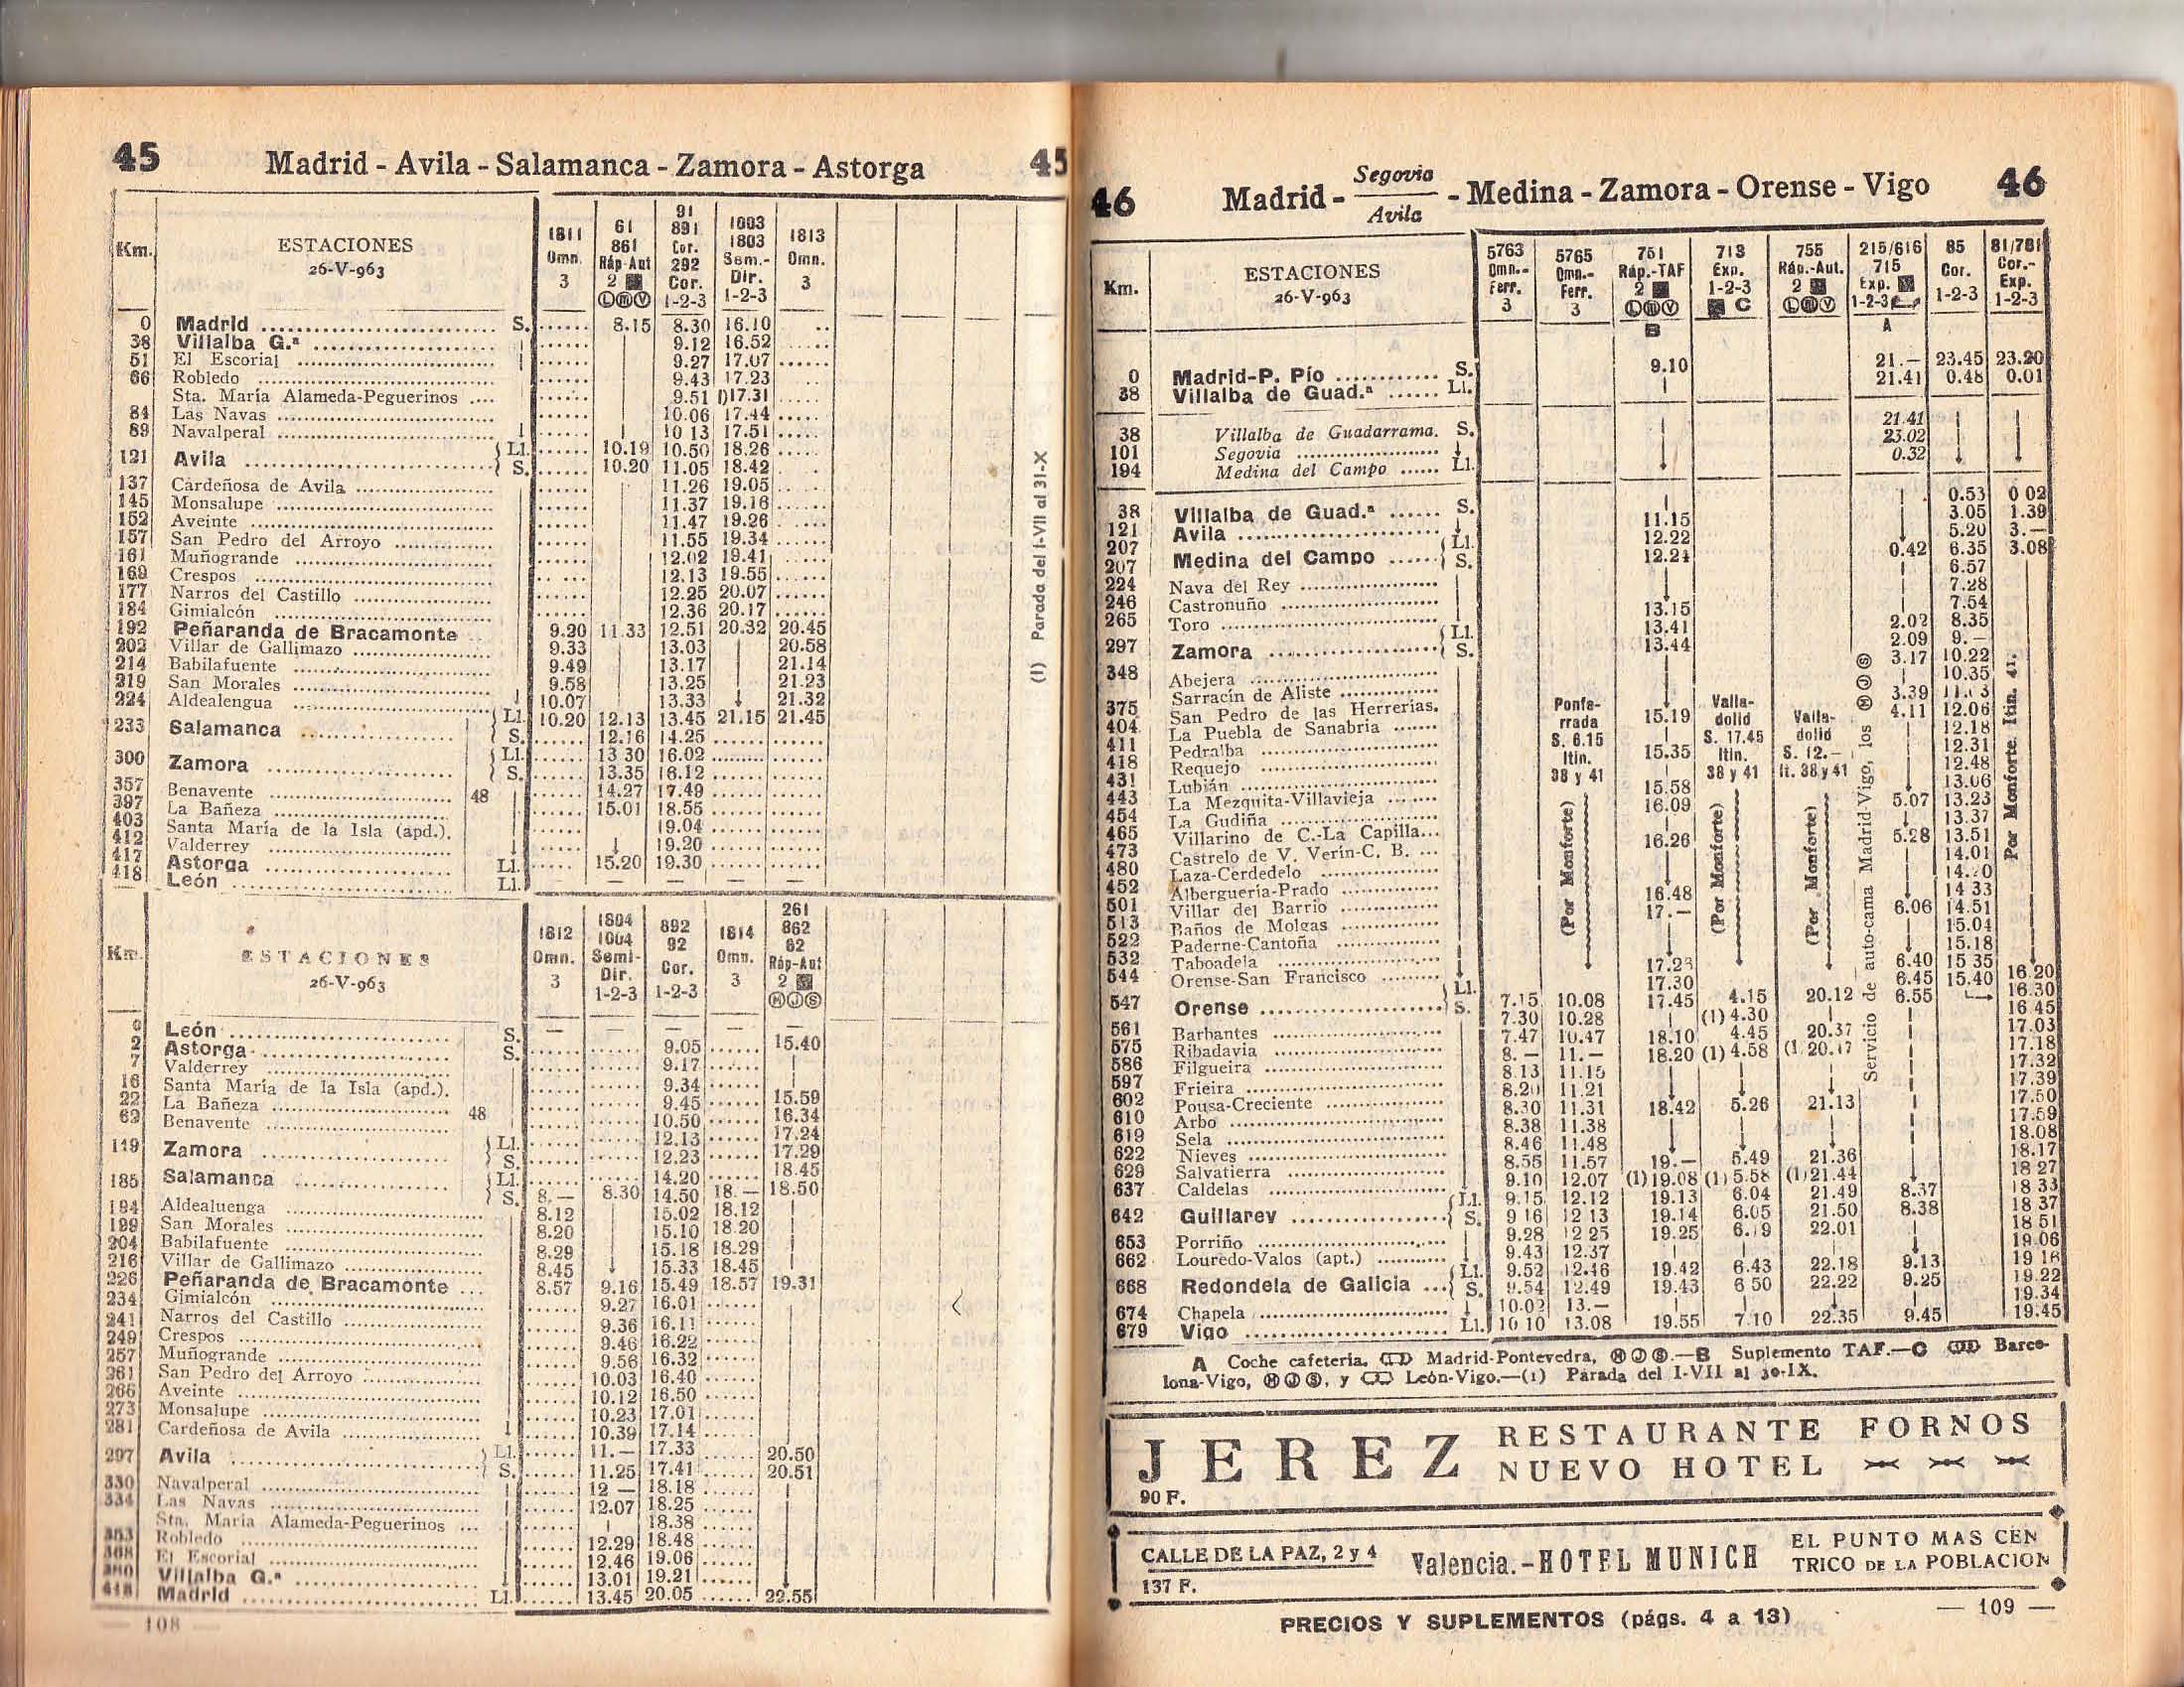 45 Madrid - Avila - Salamanca - Zamora - Astorga 45
Km. ESTACIONES 26-V-963 1811 Omn. 3 61 861 Ráp-Aut 2 ⓁⓂⓋ 91 891 Cor. 292 Cor. 1-2-3 1003 1803 Sem.- Dir. 1-2-3 1813 Omn. 3
0 Madrid S. 8.15 8.30 16.10
38 Villalba G.ª 9.12 16.52
51 El Escorial 9.27 17.07
66 Robledo 9.43 17.23
Sta. María Alameda-Peguerinos 9.51 1)17.31
84 Las Navas 10.06 17.44
89 Navalperal 10 13 17.51
121 Avila Ll. 10.19 10.50 18.26
S. 10.20 11.05 18.42
137 Cardeñosa de Avila 11.26 19.05
145 Monsalupe 11.37 19.16
152 Aveinte 11.47 19.26
157 San Pedro del Arroyo 11.55 19.34
161 Muñogrande 12.02 19.41
169 Crespos 12.13 19.55
177 Narros del Castillo 12.25 20.07
184 Gimialcón 12.36 20.17
192 Peñaranda de Bracamonte 9.20 11.33 12.51 20.32 20.45
202 Villar de Gallimazo 9.33 13.03 20.58
214 Babilafuente 9.49 13.17 21.14
219 San Morales 9.58 13.25 21.23
224 Aldealengua 10.07 13.33 21.32
233 Salamanca Ll. 10.20 12.13 13.45 21.15 21.45
S. 12.16 14.25
300 Zamora Ll. 13 30 16.02
S. 13.35 16.12
357 Benavente 48 14.27 17.49
397 La Bañeza 15.01 18.55
403 Santa María de la Isla (apd.). 19.04
412 Valderrey 19.20
417 Astorga Ll. 15.20 19.30
418 León Ll. — — — — —
(1) Parada del I-VII al 31-X
Km. ESTACIONES 26-V-963 1812 Omn. 3 1804 1004 Semi- Dir. 1-2-3 892 92 Cor. 1-2-3 1814 Omn. 3 261 862 62 Ráp-Aut 2 ⓂⒿⓈ
0 León S. — — — — —
2 Astorga S. 9.05 15.40
7 Valderrey 9.17
16 Santa María de la Isla (apd.). 9.34
22 La Bañeza 48 9.45 15.59
62 Benavente 10.50 16.34
119 Zamora Ll. 12.13 17.24
S. 12.23 17.29
185 Salamanca Ll. 14.20 18.45
S. 8.— 8.30 14.50 18.— 18.50
194 Aldealuenga 8.12 15.02 18.12
199 San Morales 8.20 15.10 18.20
204 Babilafuente 8.29 15.18 18.29
216 Villar de Gallimazo 8.45 15.33 18.45
226 Peñaranda de Bracamonte 8.57 9.16 15.49 18.57 19.31
234 Gimialcón 9.27 16.01
241 Narros del Castillo 9.36 16.11
249 Crespos 9.46 16.22
257 Muñogrande 9.56 16.32
261 San Pedro del Arroyo 10.03 16.40
266 Aveinte 10.12 16.50
273 Monsalupe 10.23 17.01
281 Cardeñosa de Avila 10.39 17.14
297 Avila Ll. 11.— 17.33 20.50
S. 11.25 17.41 20.51
330 Navalperal 12 — 18.18
334 Las Navas 12.07 18.25
Sta. María Alameda-Peguerinos 18.38
Robledo 12.29 18.48
El Escorial 12.46 19.06
Villalba G.ª 13.01 19.21
418 Madrid Ll. 13.45 20.05 22.55
— 108 —
46 Madrid - Segovia / Avila - Medina - Zamora - Orense - Vigo 46
Km. ESTACIONES 26-V-963 5763 Omn.- Ferr. 3 5765 Omn.- Ferr. 3 751 Ráp.-TAF 2 ⓁⓂⓋ B 713 Exp. 1-2-3 C 755 Ráp.-Aut. 2 ⓁⓂⓋ 215/616 715 Exp. 1-2-3 A 85 Cor. 1-2-3 81/781 Cor.- Exp. 1-2-3
0 Madrid-P. Pío S. 9.10 21.— 23.45 23.20
38 Villalba de Guad.ª Ll. 21.41 0.48 0.01
38 Villalba de Guadarrama. S. 21.41
101 Segovia 23.02
194 Medina del Campo Ll. 0.32
38 Villalba de Guad.ª S. 0.53 0 02
121 Avila 11.15 3.05 1.39
207 Medina del Campo Ll. 12.22 5.20 3.—
207 S. 12.24 0.42 6.35 3.08
224 Nava del Rey 6.57
246 Castronuño 7.28
265 Toro 13.15 7.54
297 Zamora Ll. 13.41 2.02 8.35
S. 13.44 2.09 9.—
348 Abejera 3.17 10.22
Sarracín de Aliste 10.35
375 San Pedro de las Herrerías. 3.39
404 La Puebla de Sanabria 15.19 4.11 12.06
411 Pedralba 12.18
418 Requejo 15.35 12.31
431 Lubián 12.48
443 La Mezquita-Villavieja 15.58 13.06
454 La Gudiña 16.09 5.07 13.23
465 Villarino de C.-La Capilla... 13.37
473 Castrelo de V. Verín-C. B. 16.26 5.28 13.51
480 Laza-Cerdedelo 14.01
452 Alberguería-Prado
501 Villar del Barrio 16.48 14 33
513 Baños de Molgas 17.— 6.06 14.51
522 Paderne-Cantoña 15.04
532 Taboadela 15.18
544 Orense-San Francisco 17.23 6.40 15 35
547 Orense Ll. 17.30 6.45 15.40 16.20
S. 7.15 10.08 17.45 4.15 20.12 6.55 16.30
561 Barbantes 7.30 10.28 (1) 4.30 16 45
575 Ribadavia 7.47 10.47 18.10 4.45 20.37 17.03
586 Filgueira 8.— 11.— 18.20 (1) 4.58 17.18
597 Frieira 8.13 11.15 17.32
602 Pousa-Creciente 8.20 11.21 17.39
610 Arbo 8.30 11.31 18.42 5.26 21.13 17.50
619 Sela 8.38 11.38 17.59
622 Nieves 8.46 11.48 18.08
629 Salvatierra 8.55 11.57 19.— 5.49 21.36 18.17
637 Caldelas 9.10 12.07 (1)19.08 (1) 5.58 (1)21.44 18 27
642 Guillarey Ll. 9.15 12.12 19.13 6.04 21.49 8.37 18 33
S. 9 16 12 13 19.14 6.05 21.50 8.38 18 37
653 Porriño 9.28 12 25 19.25 22.01 18 51
662 Louredo-Valos (apt.) 9.43 12.37 19.06
668 Redondela de Galicia Ll. 9.52 12.46 19.42 6.43 22.18 9.13 19 16
S. 9.54 12.49 19.43 6 50 22.22 9.25 19.22
674 Chapela 10.02 13.— 19.34
679 Vigo Ll. 10 10 13.08 19.55 7.10 22.35 9.45 19.45
Ponferrada S. 6.15 Itin. 38 y 41 (Por Monforte)
Valladolid S. 17.45 Itin. 38 y 41 (Por Monforte)
Valladolid S. 12.— It. 38 y 41 (Por Monforte)
Servicio de auto-cama Madrid-Vigo, los ⓂⒿⓈ
Por Monforte. Itin. 41.
A Coche cafetería. Madrid-Pontevedra, ⓂⒿⓈ.—B Suplemento TAF.—C Barce-
lona-Vigo, ⓂⒿⓈ, y León-Vigo.—(1) Parada del I-VII al 30-IX.
JEREZ RESTAURANTE FORNOS
NUEVO HOTEL
90 F.
CALLE DE LA PAZ, 2 y 4 Valencia.-HOTEL MUNICH EL PUNTO MAS CEN
TRICO DE LA POBLACION
137 F.
PRECIOS Y SUPLEMENTOS (págs. 4 a 13)
— 109 —